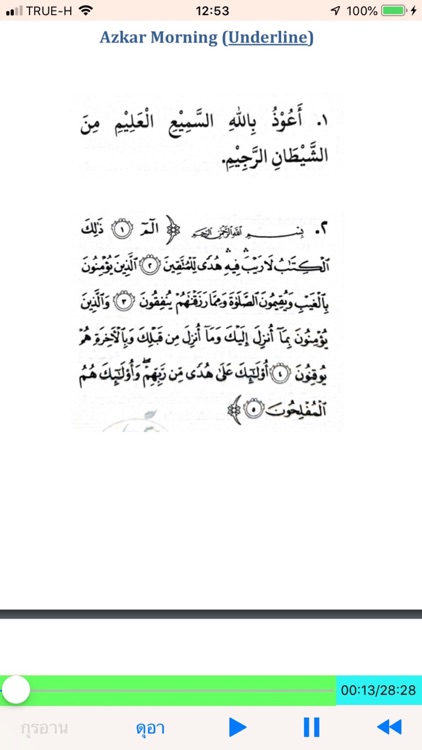 TRUE-H 12:53 100%
Azkar Morning (Underline)
١. أَعُوْذُ بِاللهِ السَّمِيْعِ الْعَلِيْمِ مِنَ
الشَّيْطَانِ الرَّجِيْمِ.
٢. بِسْمِ اللَّهِ الرَّحْمَٰنِ الرَّحِيمِ ﴿ الٓمٓ ١ ذَٰلِكَ
الْكِتَٰبُ لَا رَيْبَ ۛ فِيهِ ۛ هُدًى لِّلْمُتَّقِينَ ٢ الَّذِينَ يُؤْمِنُونَ
بِالْغَيْبِ وَيُقِيمُونَ الصَّلَوٰةَ وَمِمَّا رَزَقْنَٰهُمْ يُنفِقُونَ ٣ وَالَّذِينَ
يُؤْمِنُونَ بِمَآ أُنزِلَ إِلَيْكَ وَمَآ أُنزِلَ مِن قَبْلِكَ وَبِالْآخِرَةِ هُمْ
يُوقِنُونَ ٤ أُولَٰٓئِكَ عَلَىٰ هُدًى مِّن رَّبِّهِمْ ۖ وَأُولَٰٓئِكَ هُمُ
الْمُفْلِحُونَ ٥ ﴾
00:13/28:28
กุรอาน ดุอา